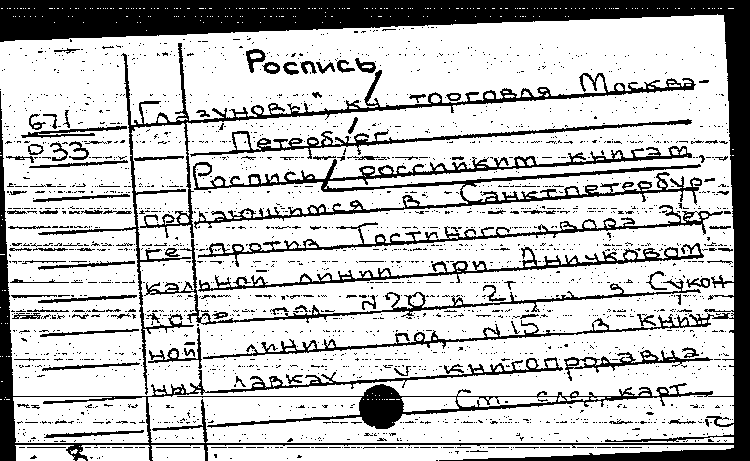 Роспись
671 „Глазуновы", кн. торговля. Москва-
Р33 Петербург.
Роспись российким книгам,
продающимся в Санктпетербур-
ге против Гостиного двора Зер-
кальной линии при Аничковом
доме под N 20 и 21, и в Сукон
ной линии под N 15. в книж-
ных лавках, у книгопродавца
См. след. карт